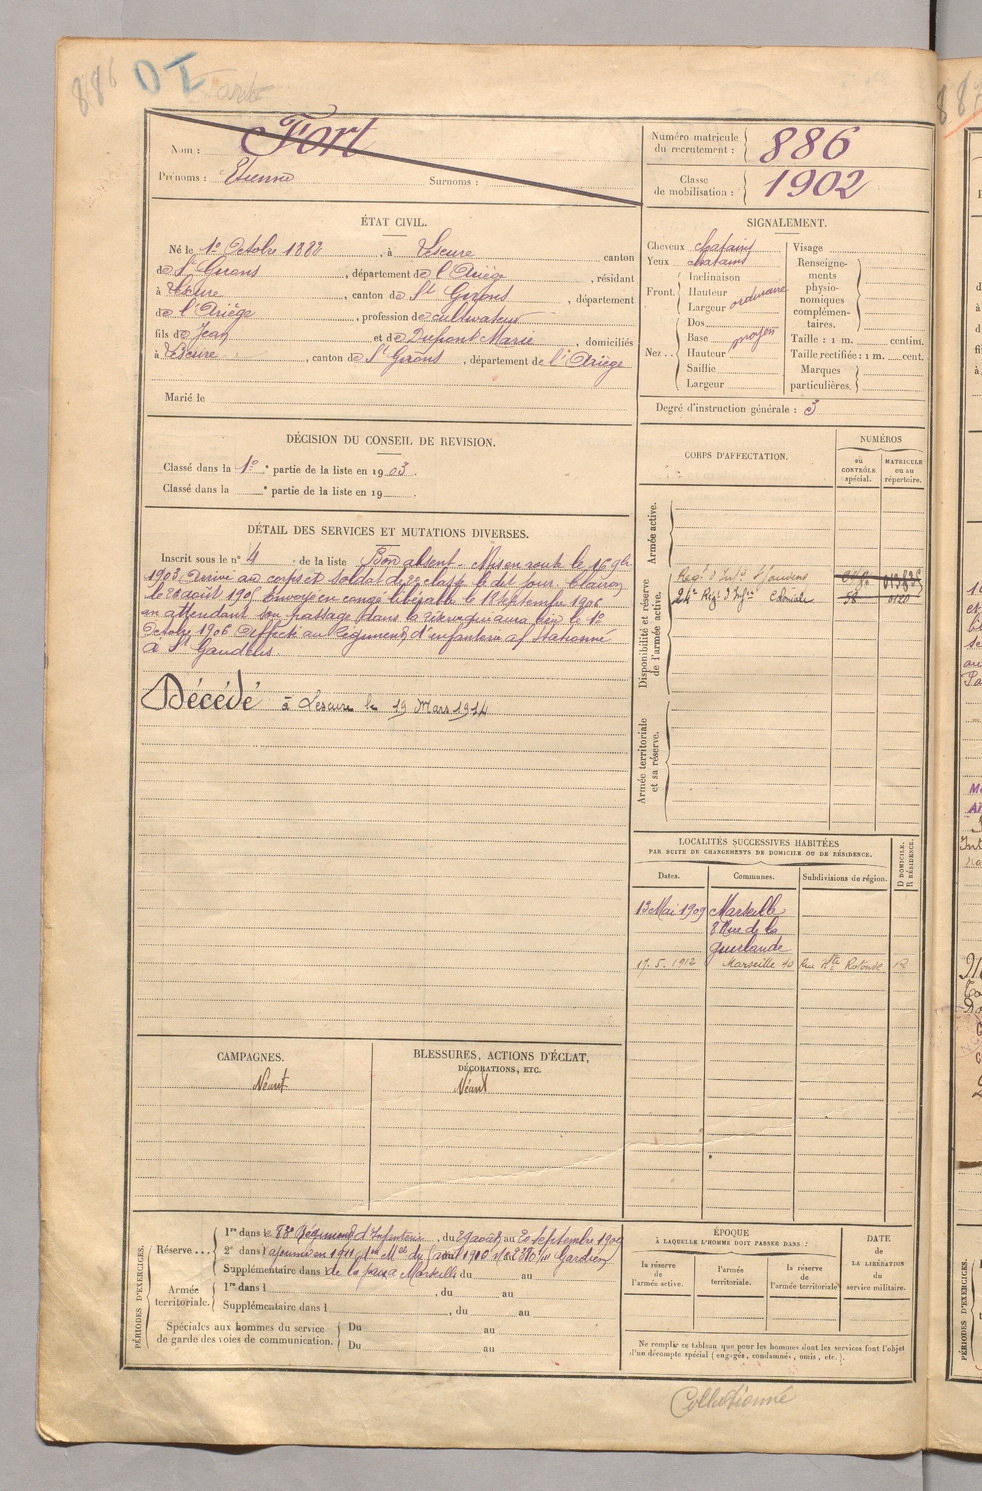 886 DI
Nom : Fort
Prénoms : Etienne Surnoms :
Numéro matricule du recrutement : 886
Classe de mobilisation : 1902
ÉTAT CIVIL.
Né le 1er Octobre 1882, à Lescure canton
de St Girons, département de l'Ariège, résidant
à Lescure, canton de St Girons, département
de l'Ariège, profession de cultivateur
fils de Jean et de Dupont Marie, domiciliés
à Lescure, canton de St Girons, département de l'Ariège
Marié le
SIGNALEMENT.
Cheveux chatains
Yeux chatains
Front. Inclinaison
Hauteur
Largeur ordinaire
Nez .. Dos
Base moyen
Hauteur
Saillie
Largeur
Visage
Renseignements physionomiques complémentaires.
Taille : 1 m. centim.
Taille rectifiée : 1 m. cent.
Marques particulières.
Degré d'instruction générale : 3
DÉCISION DU CONSEIL DE REVISION.
Classé dans la 1e partie de la liste en 1903.
Classé dans la e partie de la liste en 19
DÉTAIL DES SERVICES ET MUTATIONS DIVERSES.
Inscrit sous le n° 4 de la liste Bon absent. Mis en route le 16 9bre
1903. Arrivé au corps et Soldat de 2e classe le dit jour. Clairon
le 22 août 1905. Envoyé en congé libérable le 18 septembre 1906
en attendant son passage dans la réserve qui aura lieu le 1er
Octobre 1906. Affecté au Régiment d'infanterie stationné
à St Gaudens.
Décédé à Lescure le 19 Mars 1914
CORPS D'AFFECTATION.
NUMÉROS
au CONTRÔLE spécial.
MATRICULE ou au répertoire.
Armée active.
Disponibilité et réserve de l'armée active.
Régt d'Infie St Gaudens
24e Régt d'Infie Coloniale
Armée territoriale et sa réserve.
LOCALITÉS SUCCESSIVES HABITÉES
PAR SUITE DE CHANGEMENTS DE DOMICILE OU DE RÉSIDENCE.
Dates. Communes. Subdivisions de région. D DOMICILE. R RÉSIDENCE.
13 Mai 1909 Marseille
8 Rue de la
Guirlande
17.5.1912 Marseille 40 Rue Rotonde R
CAMPAGNES.
Néant
BLESSURES, ACTIONS D'ÉCLAT,
DÉCORATIONS, ETC.
Néant
PÉRIODES D'EXERCICES.
Réserve ...
1re dans le 83e Régiment d'Infanterie, du 29 août au 20 septembre 1909
2e dans l ajourné en 1911 Gardien
Supplémentaire dans de la paix à Marseille du au
Armée territoriale.
1re dans l , du au
Supplémentaire dans l , du au
Spéciales aux hommes du service de garde des voies de communication.
Du au
Du au
ÉPOQUE
À LAQUELLE L'HOMME DOIT PASSER DANS :
la réserve de l'armée active.
l'armée territoriale.
la réserve de l'armée territoriale
DATE DE LA LIBÉRATION du service militaire.
Ne remplir ce tableau que pour les hommes dont les services font l'objet
d'un décompte spécial (engagés, condamnés, omis, etc.).
Collationné